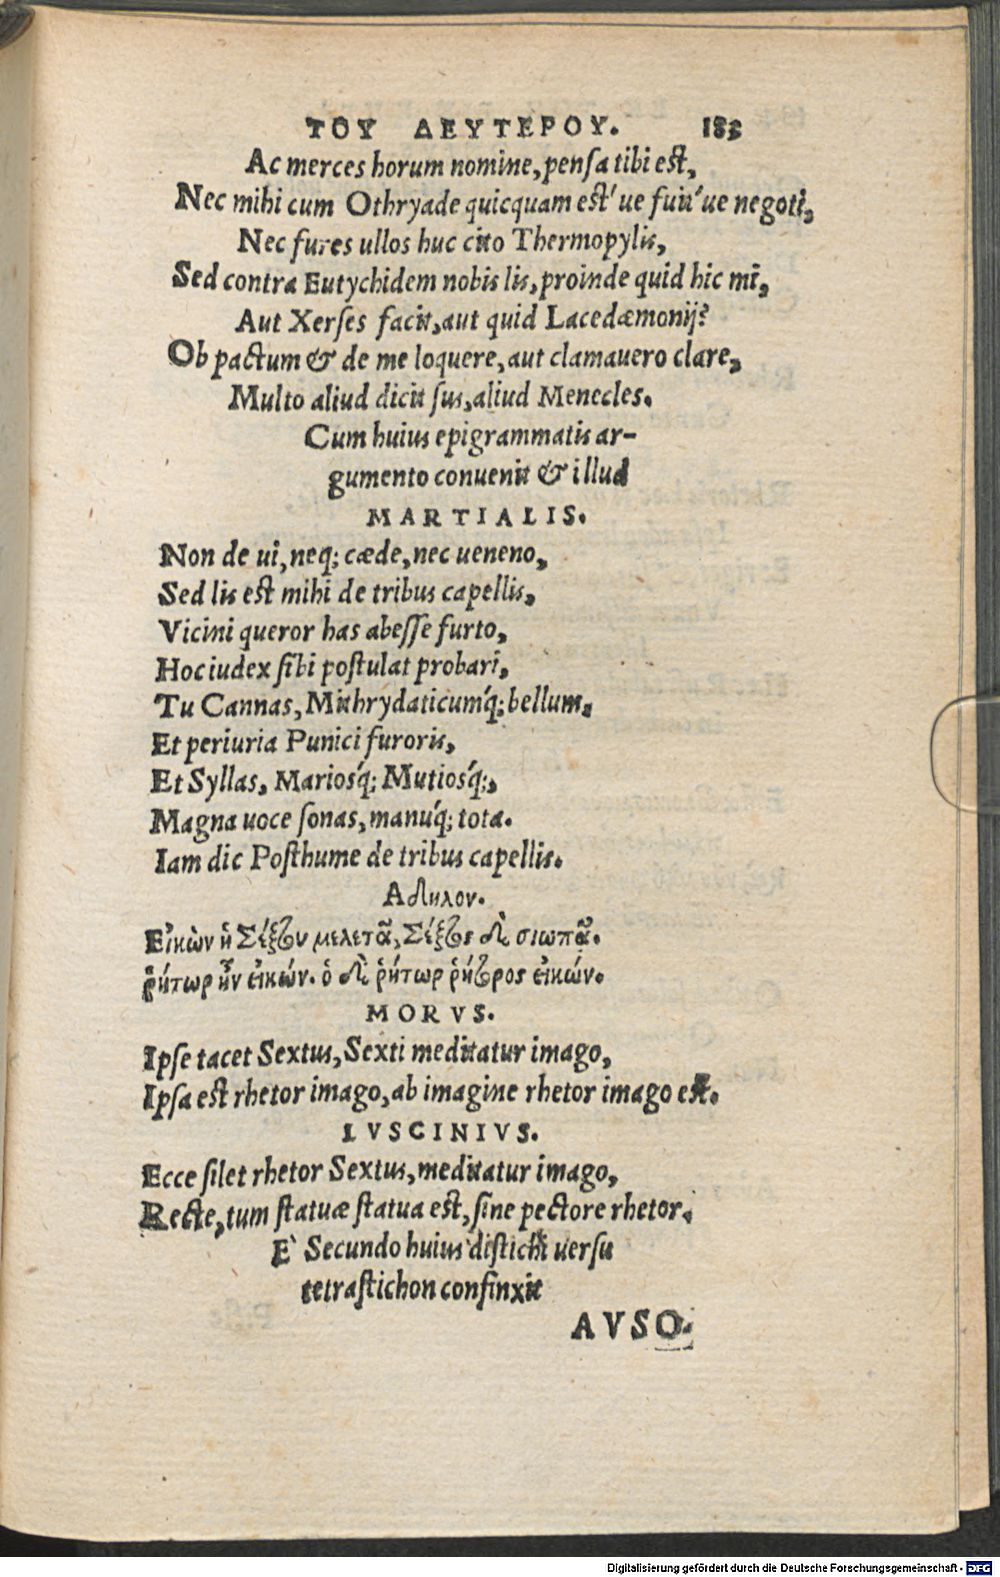 ΤΟΥ ΔΕΥΤΕΡΟΥ. 183
Ac merces horum nomine, pensa tibi est,
Nec mihi cum Othryade quicquam est'ue fuit'ue negoti,
Nec fures ullos huc cito Thermopylis,
Sed contra Eutychidem nobis lis, proinde quid hic mi,
Aut Xerses facit, aut quid Lacedæmonij?
Ob pactum & de me loquere, aut clamauero clare,
Multo aliud dicit sus, aliud Menecles.
Cum huius epigrammatis ar-
gumento conuenit & illud
MARTIALIS.
Non de ui, neq; cæde, nec ueneno,
Sed lis est mihi de tribus capellis,
Vicini queror has abesse furto,
Hoc iudex sibi postulat probari,
Tu Cannas, Mithrydaticumq́; bellum,
Et periuria Punici furoris,
Et Syllas, Mariosq́; Mutiosq́;,
Magna uoce sonas, manuq́; tota.
Iam dic Posthume de tribus capellis.
Αδηλον.
Εἰκὼν ἡ Σέξτου μελετᾷ, Σέξτος δὲ σιωπᾷ.
ῥήτωρ ἦν εἰκών. ὁ δὲ ῥήτωρ ῥήτορος εἰκών.
MORVS.
Ipse tacet Sextus, Sexti meditatur imago,
Ipsa est rhetor imago, ab imagine rhetor imago est.
LVSCINIVS.
Ecce silet rhetor Sextus, meditatur imago,
Recte, tum statuæ statua est, sine pectore rhetor.
E` Secundo huius distichi uersu
tetrastichon confinxit
AVSO-
Digitalisierung gefördert durch die Deutsche Forschungsgemeinschaft - DFG